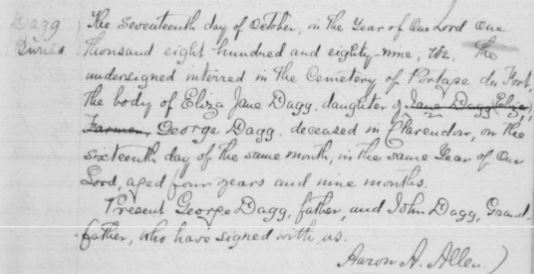 Dagg
Buried
The Seventeenth day of October, in the Year of Our Lord One
thousand eight hundred and eighty-nine, We, The
undersigned interred in the Cemetery of Portage du Fort,
the body of Eliza Jane Dagg, daughter of Jane Dagg (Eliza),
Farmer George Dagg, deceased in Clarendon, on the
sixteenth day of the same month, in the same Year of Our
Lord, aged four years and nine months.
Present George Dagg, father, and John Dagg, Grand
father, who have signed with us.
Aaron A. Allen.